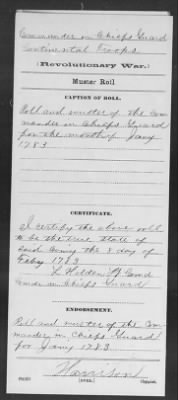 Commander in Chiefs Guard
Continental Troops
(Revolutionary War.)
Muster Roll
CAPTION OF ROLL.
Roll and muster of the Com
mander in Chiefs Guard
for the month of Jany
1783
CERTIFICATE.
I certify the above roll
to be the true state of
said Army the 8 day of
Feby 1783
Comd
Commander in Chiefs Guard
ENDORSEMENT.
Roll and muster of the Com
mander in Chiefs Guard
for Jany 1783.
Harrison
Copyist.